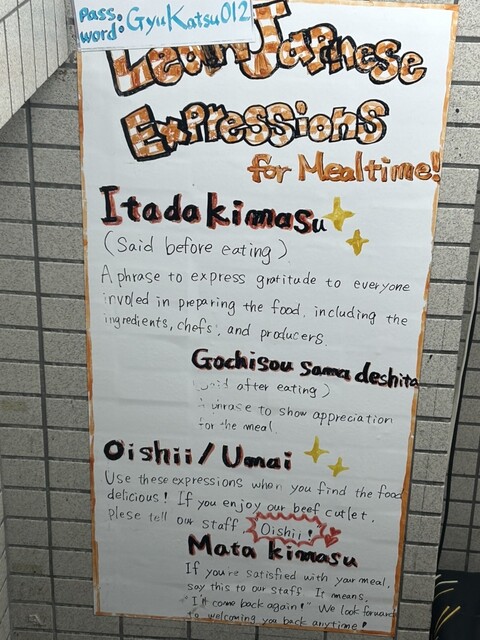 Pass.
word: GyuKatsu012
Lean Japnese
Expressions
for Mealtime!
Itadakimasu
(Said before eating)
A phrase to express gratitude to everyone
involed in preparing the food, including the
ingredients, chefs, and producers.
Gochisou sama deshita
(said after eating)
A phrase to show appreciation
for the meal.
Oishii/Umai
Use these expressions when you find the food
delicious! If you enjoy our beef cutlet,
plese tell our staff Oishii!
Mata kimasu
If you're satisfied with your meal,
say this to our staff. It means,
"I'll come back again!" We look forward
to welcoming you back anytime!